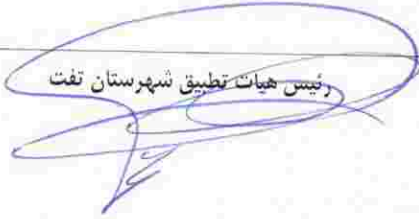 رئیس هیات تطبیق شهرستان تفت